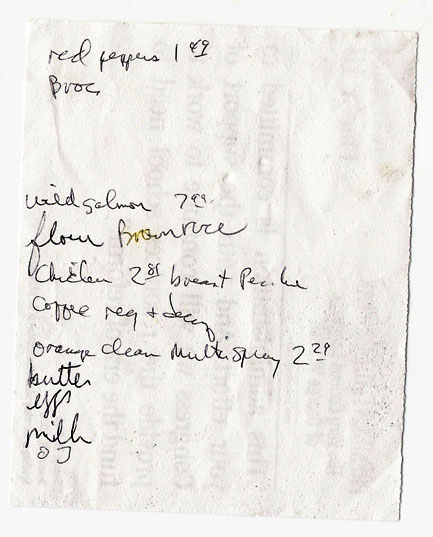 red peppers 1 49
Broc
wild salmon 7 99
flour Brown rice
Chicken 2 89 breast Perdue
Coffee reg + decaf
orange clean Multi spray 2 29
butter
eggs
milk
OJ